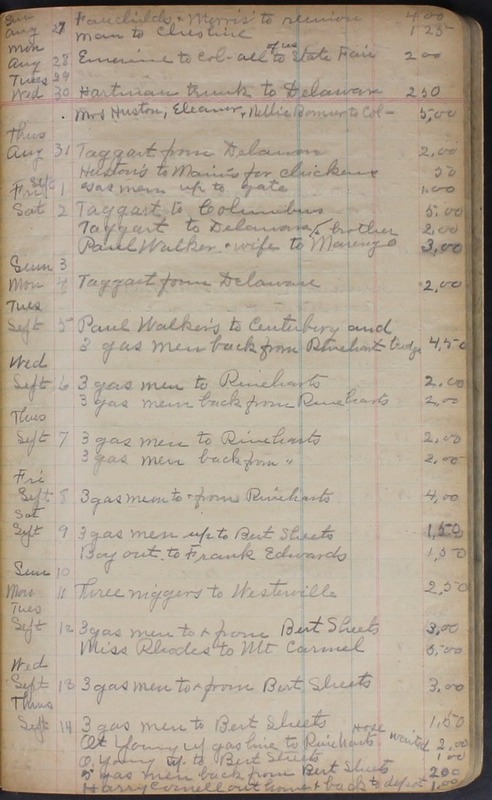 Sun Aug 27 Fairchilds + Morris to reunion 4.00
man to Cheshire 1.25
Mon
Aug 28 Emerine to Col- all of us to State Fair 2.00
Tues 29
Wed 30 Hartman trunk to Delaware 2.50
Mrs Huston, Eleanor, Nellie Bonner to Col- 5.00
Thus
Aug 31 Taggart from Delaware 2.00
Huston's to Main's for chickens 50
Fri Sept 1 Gas men up to gate 1.00
Sat 2 Taggart to Columbus 5.00
Taggart to Delaware, brother 2.00
Paul Walker + wife to Marengo 3.00
Sun 3
Mon 4 Taggart from Delaware 2.00
Tues
Sept 5 Paul Walker's to Centerberg and
3 gas men back from Rinehart 4.50
Wed
Sept 6 3 gas men to Rineharts 2.00
3 gas men back from Rineharts 2.00
Thus
Sept 7 3 gas men to Rineharts 2.00
3 gas men back from " 2.00
Fri
Sept 8 3 gas men to + from Rineharts 4.00
Sat
Sept 9 3 gas men up to Bert Sheets 1.50
Boy out to Frank Edwards 1.50
Sun 10
Mon 11 Three niggers to Westerville 2.50
Tues
Sept 12 3 gas men to + from Bert Sheets 3.00
Miss Rhodes to Mt Carmel 5.00
Wed
Sept 13 3 gas men to + from Bert Sheets 3.00
Thus
Sept 14 3 gas men to Bert Sheets 1.50
Young up gas line to Rineharts waited 2.00
O. Young up to Bert Sheets 1.00
5 gas men back from Bert Sheets 2.00
Harry Cornell out home + back to depot 1.00